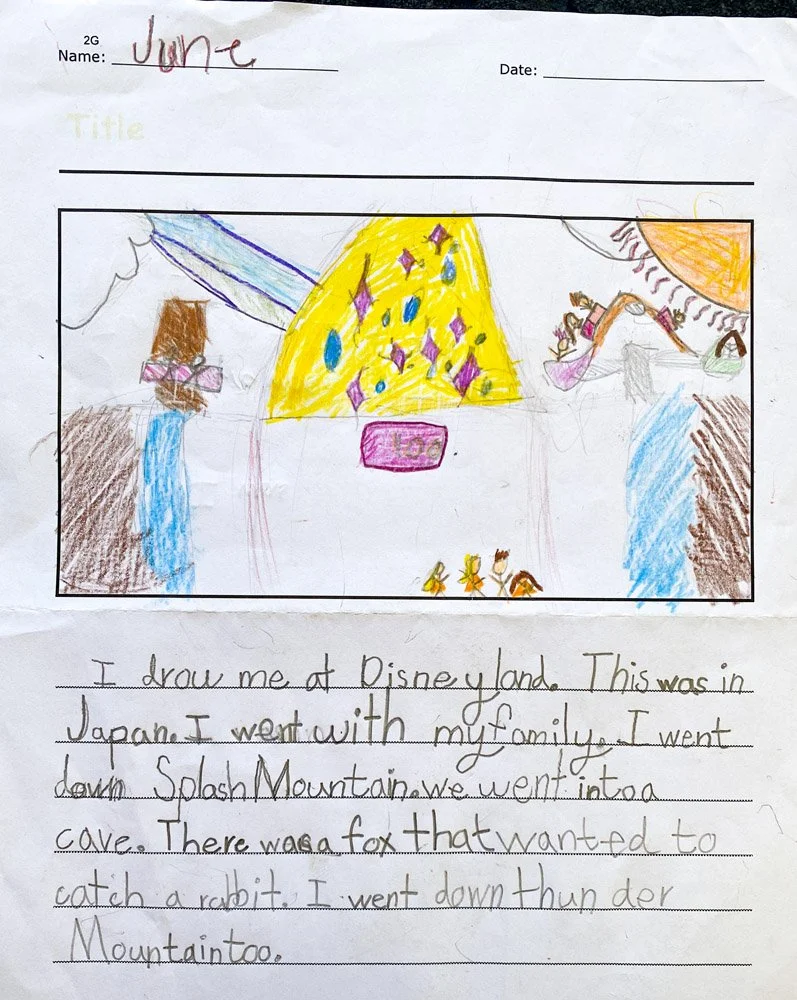 2G
Name: June
Date:
Title
100
I draw me at Disneyland. This was in
Japan. I went with my family. I went
down Splash Mountain. we went into a
cave. There was a fox that wanted to
catch a rabbit. I went down thun der
Mountain too.